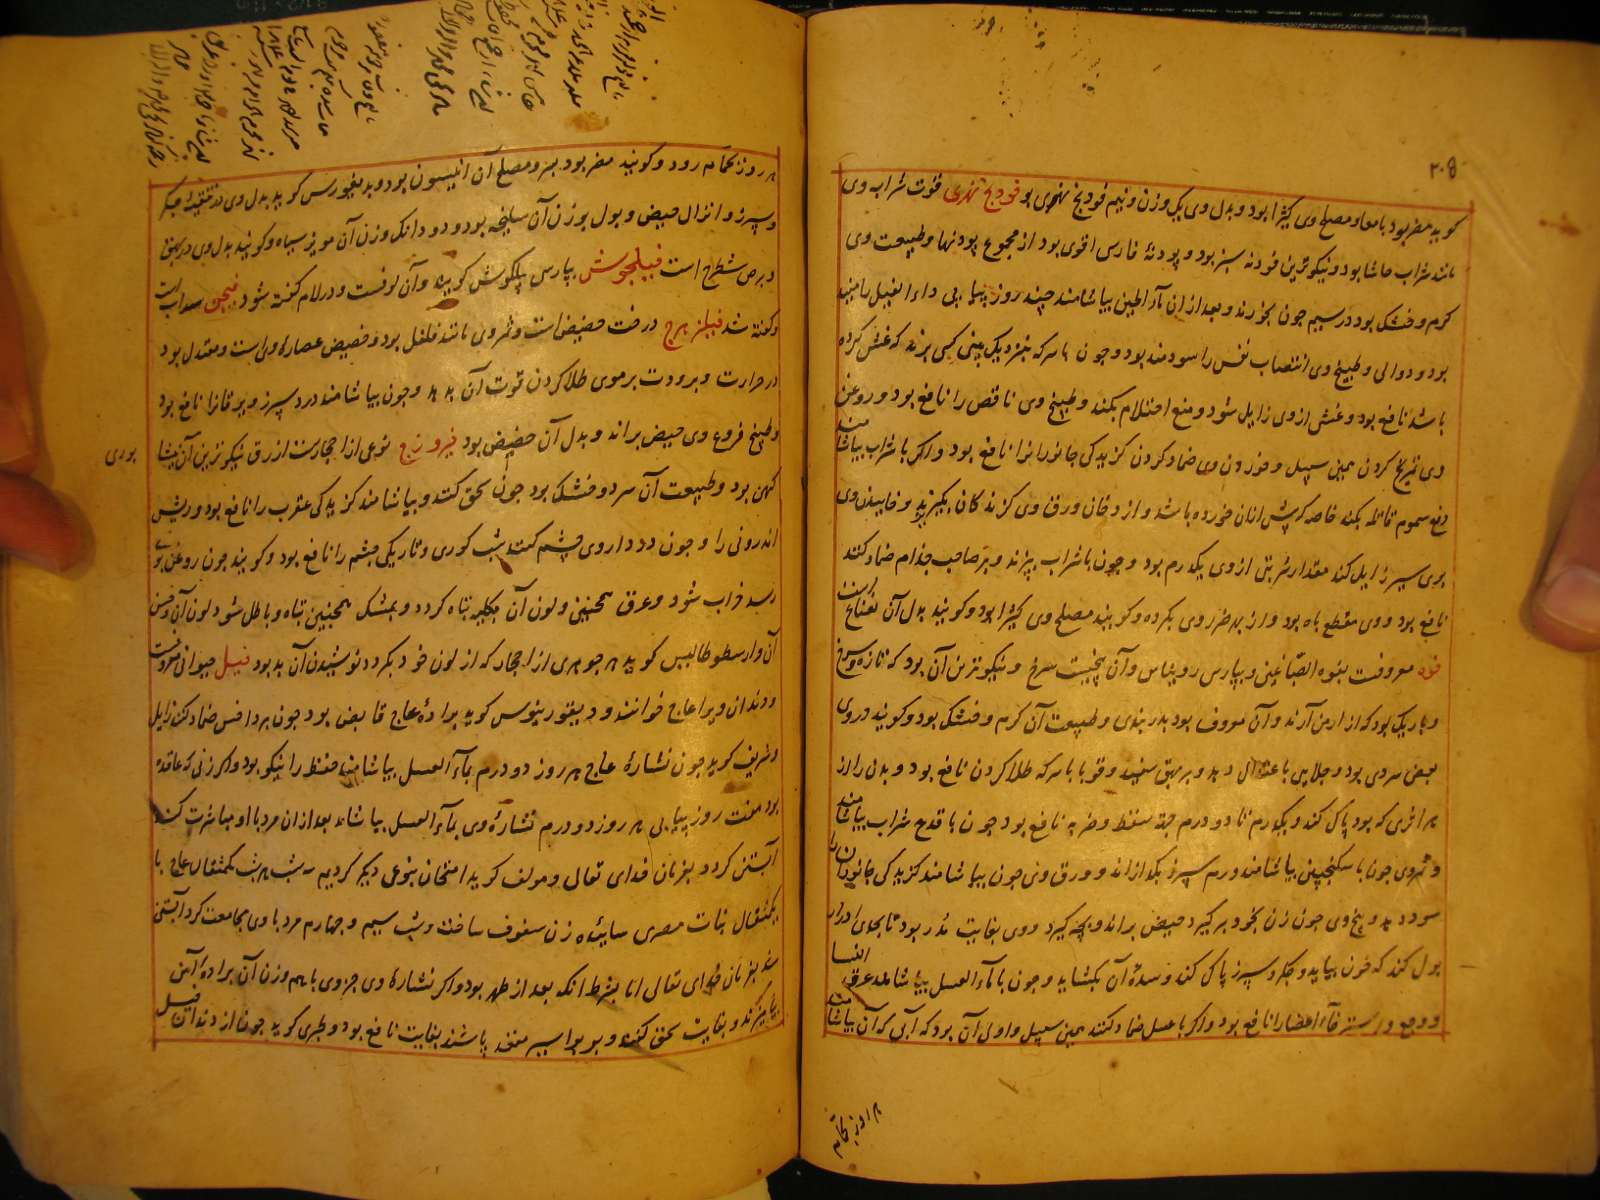 ۲۰۸
کویند مضر بود بامعا و مصلح وی کثیرا بود و بدل وی یک وزن و نیم فودنج نهری بو فودنج نهری قوت شراب وی
مانند شراب حاشا بود و نیکوترین فودنه سبز بود و پودنهٔ فارسی اقوی بود از مجموع پودنها و طبیعت وی
کرم و خشک بود در سیم چون بخورند و بعد از ان مآء الجبن بیاشامند چند روز پیاپی داء الفیل را مفید
بود و دوالی و طبیخ وی انتصاب نفس را سودمند بود و چون با سرکه بنزدیک بینی کسی برند که غش کرده
باشد نافع بود و غشی از وی زایل شود و منع احتلام بکند و طبیخ وی ناقص را نافع بود و روغن
وی تمریخ کردن همین سبیل و خوردن وی ضماد کردن کزیدکی جانورانرا نافع بود و اکر با شراب بیاشامند
دفع سموم قاتله بکند خاصه که پیش ازان خورده باشد و از دخان ورق وی کزندکان بکریزند و خاییدن وی
بوی سیر زایل کند مقدار شربتی از وی یکدرم بود و چون با شراب بپزند و بر صاحب جذام ضماد کنند
نافع بود و وی مقطع باه بود و کویند مصلح وی کثیرا بود و کویند بدل آن نعناع است
فوه معروفست بفوه الصباغین و بپارسی روناس و آن بیخیست سرخ و نیکوترین آن بود که تازه و سرخ
و باریک بود که از ارمن آرند و آن معروف بود بدربندی و طبیعت آن کرم و خشک بود و کویند در وی
بعضی سردی بود و جلایی باعتدال دهد و بر بهق سفید و قوبا با سرکه طلا کردن نافع بود و بدن را از
هر اثری که بود پاک کند و یکدرم تا دو درم جهة سقطه و ضربه نافع بود چون با قدح شراب بیاشامند
و ثمر وی چون با سکنجبین بیاشامند ورم سپرز بکدازاند و ورق وی چون بیاشامند کزیدکی جانوران را
سود دهد و بیخ وی چون زن بخود برکیرد حیض براند و بچه کیرد و وی بغایت مدر بود تا بحدی ادرار
بول کند که خون بیاید و جکر و سپرز پاک کند و سدهٔ آن بکشاید و چون با مآء العسل بیاشامند عرق النسا
و وجع و استرخاء اعضا را نافع بود و اکر با عسل ضماد کنند همین سبیل و اولی آن بود که آبی که آن بیاشامند
هر روز بحمام
هر روز بحمام رود و کویند مضر بود بسر و مصلح آن انیسون بود و دیسقوریدس کوید بدل وی در تنقیه جکر
و سپرز و انزال حیض و بول بوزن آن سلیخه بود و دو دانک وزن آن مویز سیاه و کویند بدل وی در بهق
و برص شیطرج است فیلجوش بپارسی پیلکوش کویند و آن لوفست و در لام کفته شود فیجن سداب است
و کفته شد فیلزهرج درخت حضض است و ثمر وی مانند فلفل بود و حضض عصارهٔ ویست و معتدل بود
در حرارت و برودت بر موی طلا کردن قوت آن بدهد و چون بیاشامند درد سپرز و یرقانرا نافع بود
و طبیخ فروع وی حیض براند و بدل آن حضض بود فیروزج نوعی از احجارست ازرق نیکوترین آن نیشا
بوری
کهن بود و طبیعت آن سرد و خشک بود چون سحق کنند و بیاشامند کزیدکی عقرب را نافع بود و ریش
اندرونی را و چون در داروی چشم کنند شب کوری و تاریکی چشم را نافع بود و کویند چون روغن بوی
رسد خراب شود و عرق همچنین و لون آن بکلیه تباه کردد و بمشک همچنین تباه و باطل شود لون آن و حسن
آن و ارسطوطالیس کوید هر جوهری از احجار که از لون خود بکردد نوشیدن آن بد بود فیل حیوانی معروفست
و دندان ویرا عاج خوانند و دیسقوریدوس کوید برادهٔ عاج قابض بود چون بر داخس ضماد کنند زایل
و شریف کوید چون نشارهٔ عاج هر روز دو درم بمآء العسل بیاشامند حفظ را نیکو بود و اکر زنی که عاقره
بود هفت روز پیاپی هر روز دو درم نشارهٔ وی بمآء العسل بیاشامد بعد از ان مرد با او مباشرت کند
آبستن کردد بفرمان خدای تعالی و مولف کوید امتحان بنوعی دیکر کردیم سه شب هر شب یکمثقال عاج با
یکمثقال نبات مصری ساییده زن سفوف ساخت و شب سیم و چهارم مرد با وی مجامعت کرد آبستن
شد بفرمان خدای تعالی اما بشرط انکه بعد از طهر بود و اکر نشارهٔ وی جزوی با هم وزن آن برادهٔ آهن
بیامیزند و بغایت سحق کنند و بر بواسیر مقعد پاشند بغایت نافع بود و طبری کوید چون از دندان فیل